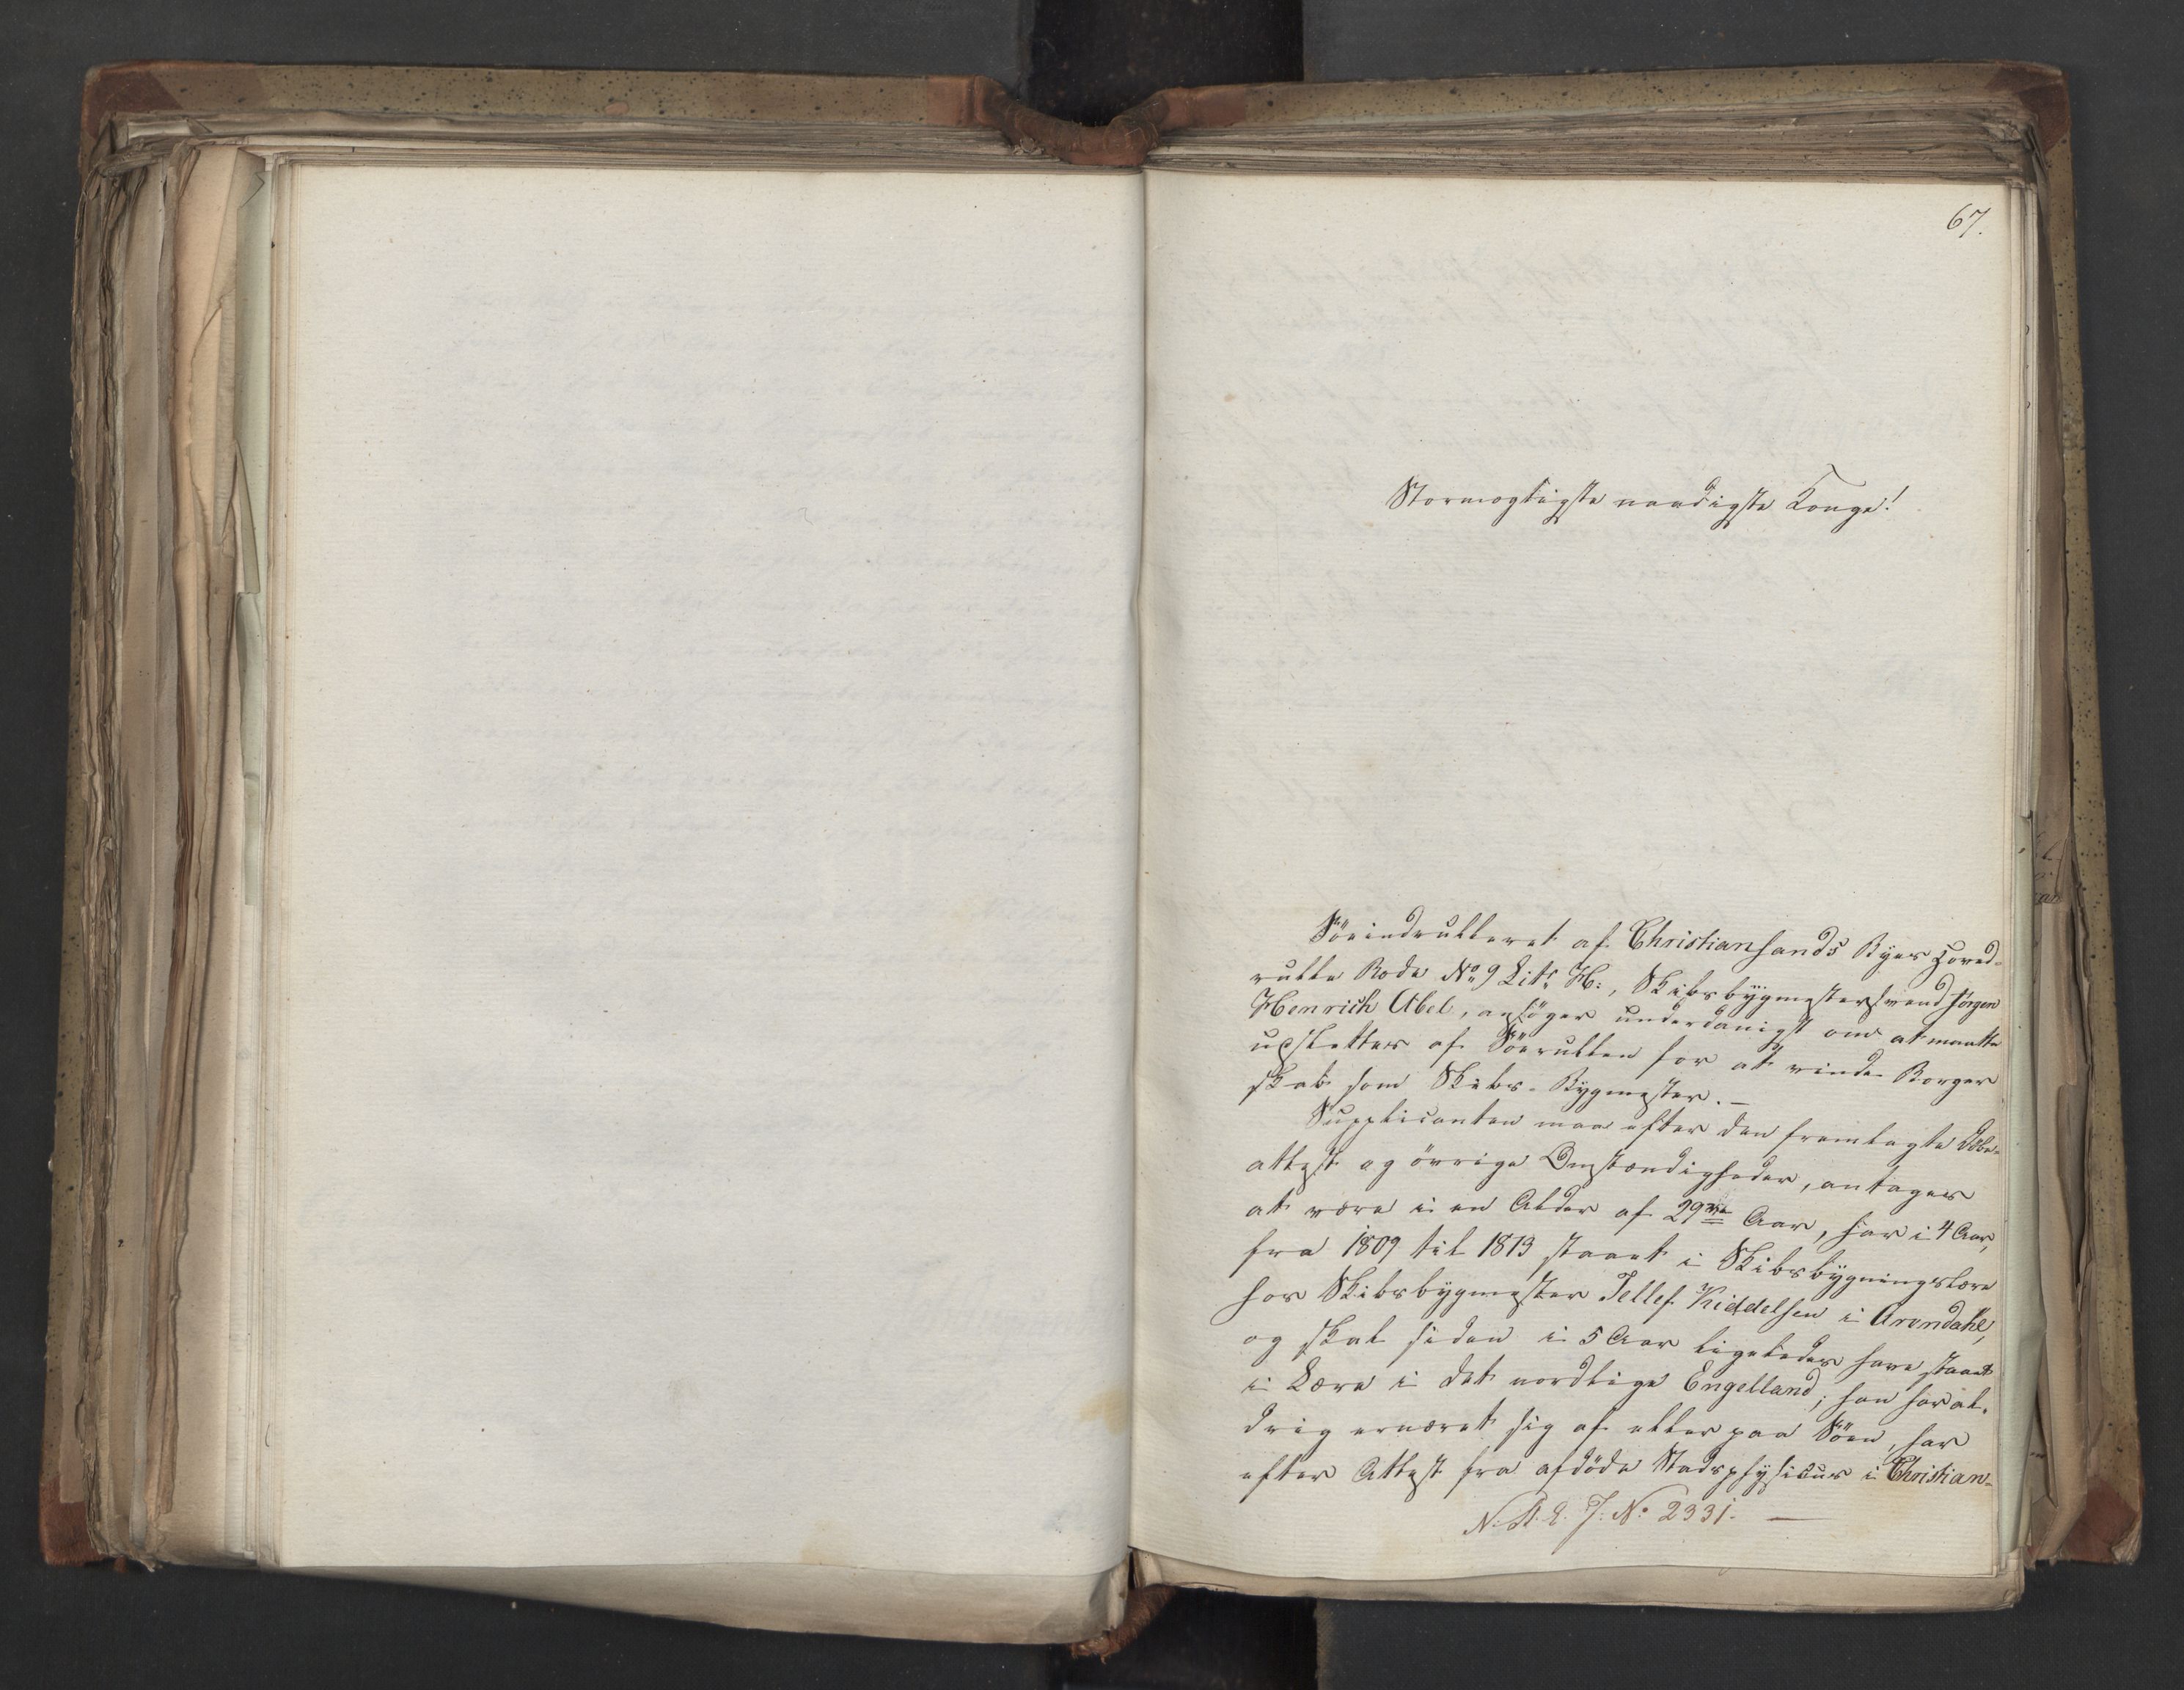 67.
Stormægtigste naadigste Konge!
Söeindrulleret af Christiansands Byes Hoved-
rulle Rode No 9 Litr H:, Skibsbygmestersvend Jörgen
Henrich Abel, ansöger underdanigst om at maatte
udslettes af Söerullen for at vinde Borger
skab som Skibs-Bygmester. —
Supplicanten maa efter den fremlagte Döbe-
attest og övrige Omstændigheder, antages
at være i en Alder af 29ve Aar, har i 4 Aar,
fra 1809 til 1813 staaet i Skibsbygningslære
hos Skibsbygmester Tellef Kiddelsen i Arendahl,
og skal siden i 5 Aar ligeledes have staaet
i Lære i det nordlige Engelland; han har al-
drig ernæret sig af eller paa Söen, har
efter Attest fra afdöde Stadsphysicus i Christian-
N. A. E. J: No 2331. —